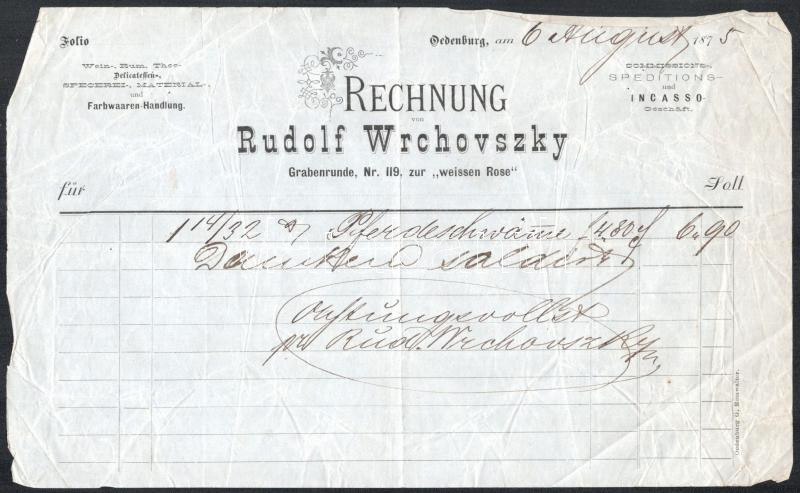 Folio
Oedenburg, am 6 August 1875
Wein-, Rum, Thee-
Delicatessen-,
SPECEREI-, MATERIAL-,
und
Farbwaaren-Handlung.
COMMISSIONS-,
SPEDITIONS-
und
INCASSO-
Geschäft.
RECHNUNG
von
Rudolf Wrchovszky
Grabenrunde, Nr. 119, zur „weissen Rose"
für
Soll
1 14/32 Pferdeschwämme f 480 6 90
Dankend saldirt
Achtungsvollst
pr Rud. Wrchovszky
Oedenburg G. Romwalter.